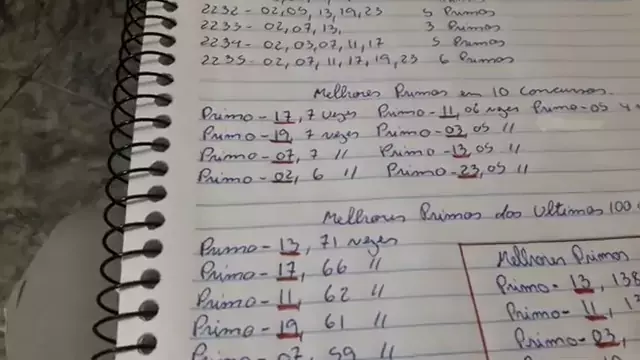 2232 - 02, 05, 13, 19, 23 5 Primos
2233 - 02, 07, 13, 3 Primos
2234 - 02, 03, 07, 11, 17 5 Primos
2235 - 02, 07, 11, 17, 19, 23 6 Primos
Melhores Primos em 10 concursos.
Primo - 17, 7 vezes Primo - 11, 06 vezes Primo - 05
Primo - 19, 7 vezes Primo - 03, 05 "
Primo - 07, 7 " Primo - 13, 05 "
Primo - 02, 6 " Primo - 23, 05 "
Melhores Primos dos ultimos 100
Primo - 13, 71 vezes
Primo - 17, 66 "
Primo - 11, 62 "
Primo - 19, 61 "
Primo - 07, 59 "
Melhores Primos
Primo - 13, 138
Primo - 11, 1
Primo - 03,